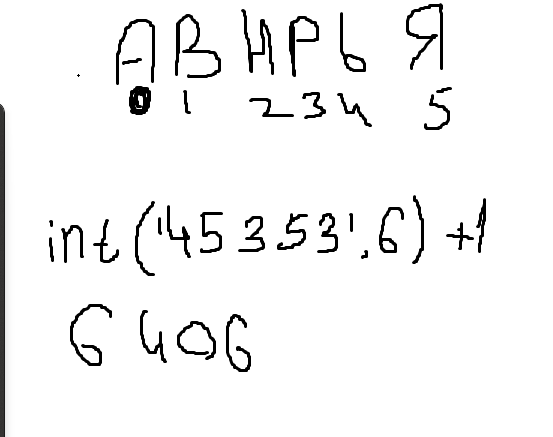 А В Н Р Ь Я
0 1 2 3 4 5
int('45353',6)+1
6406